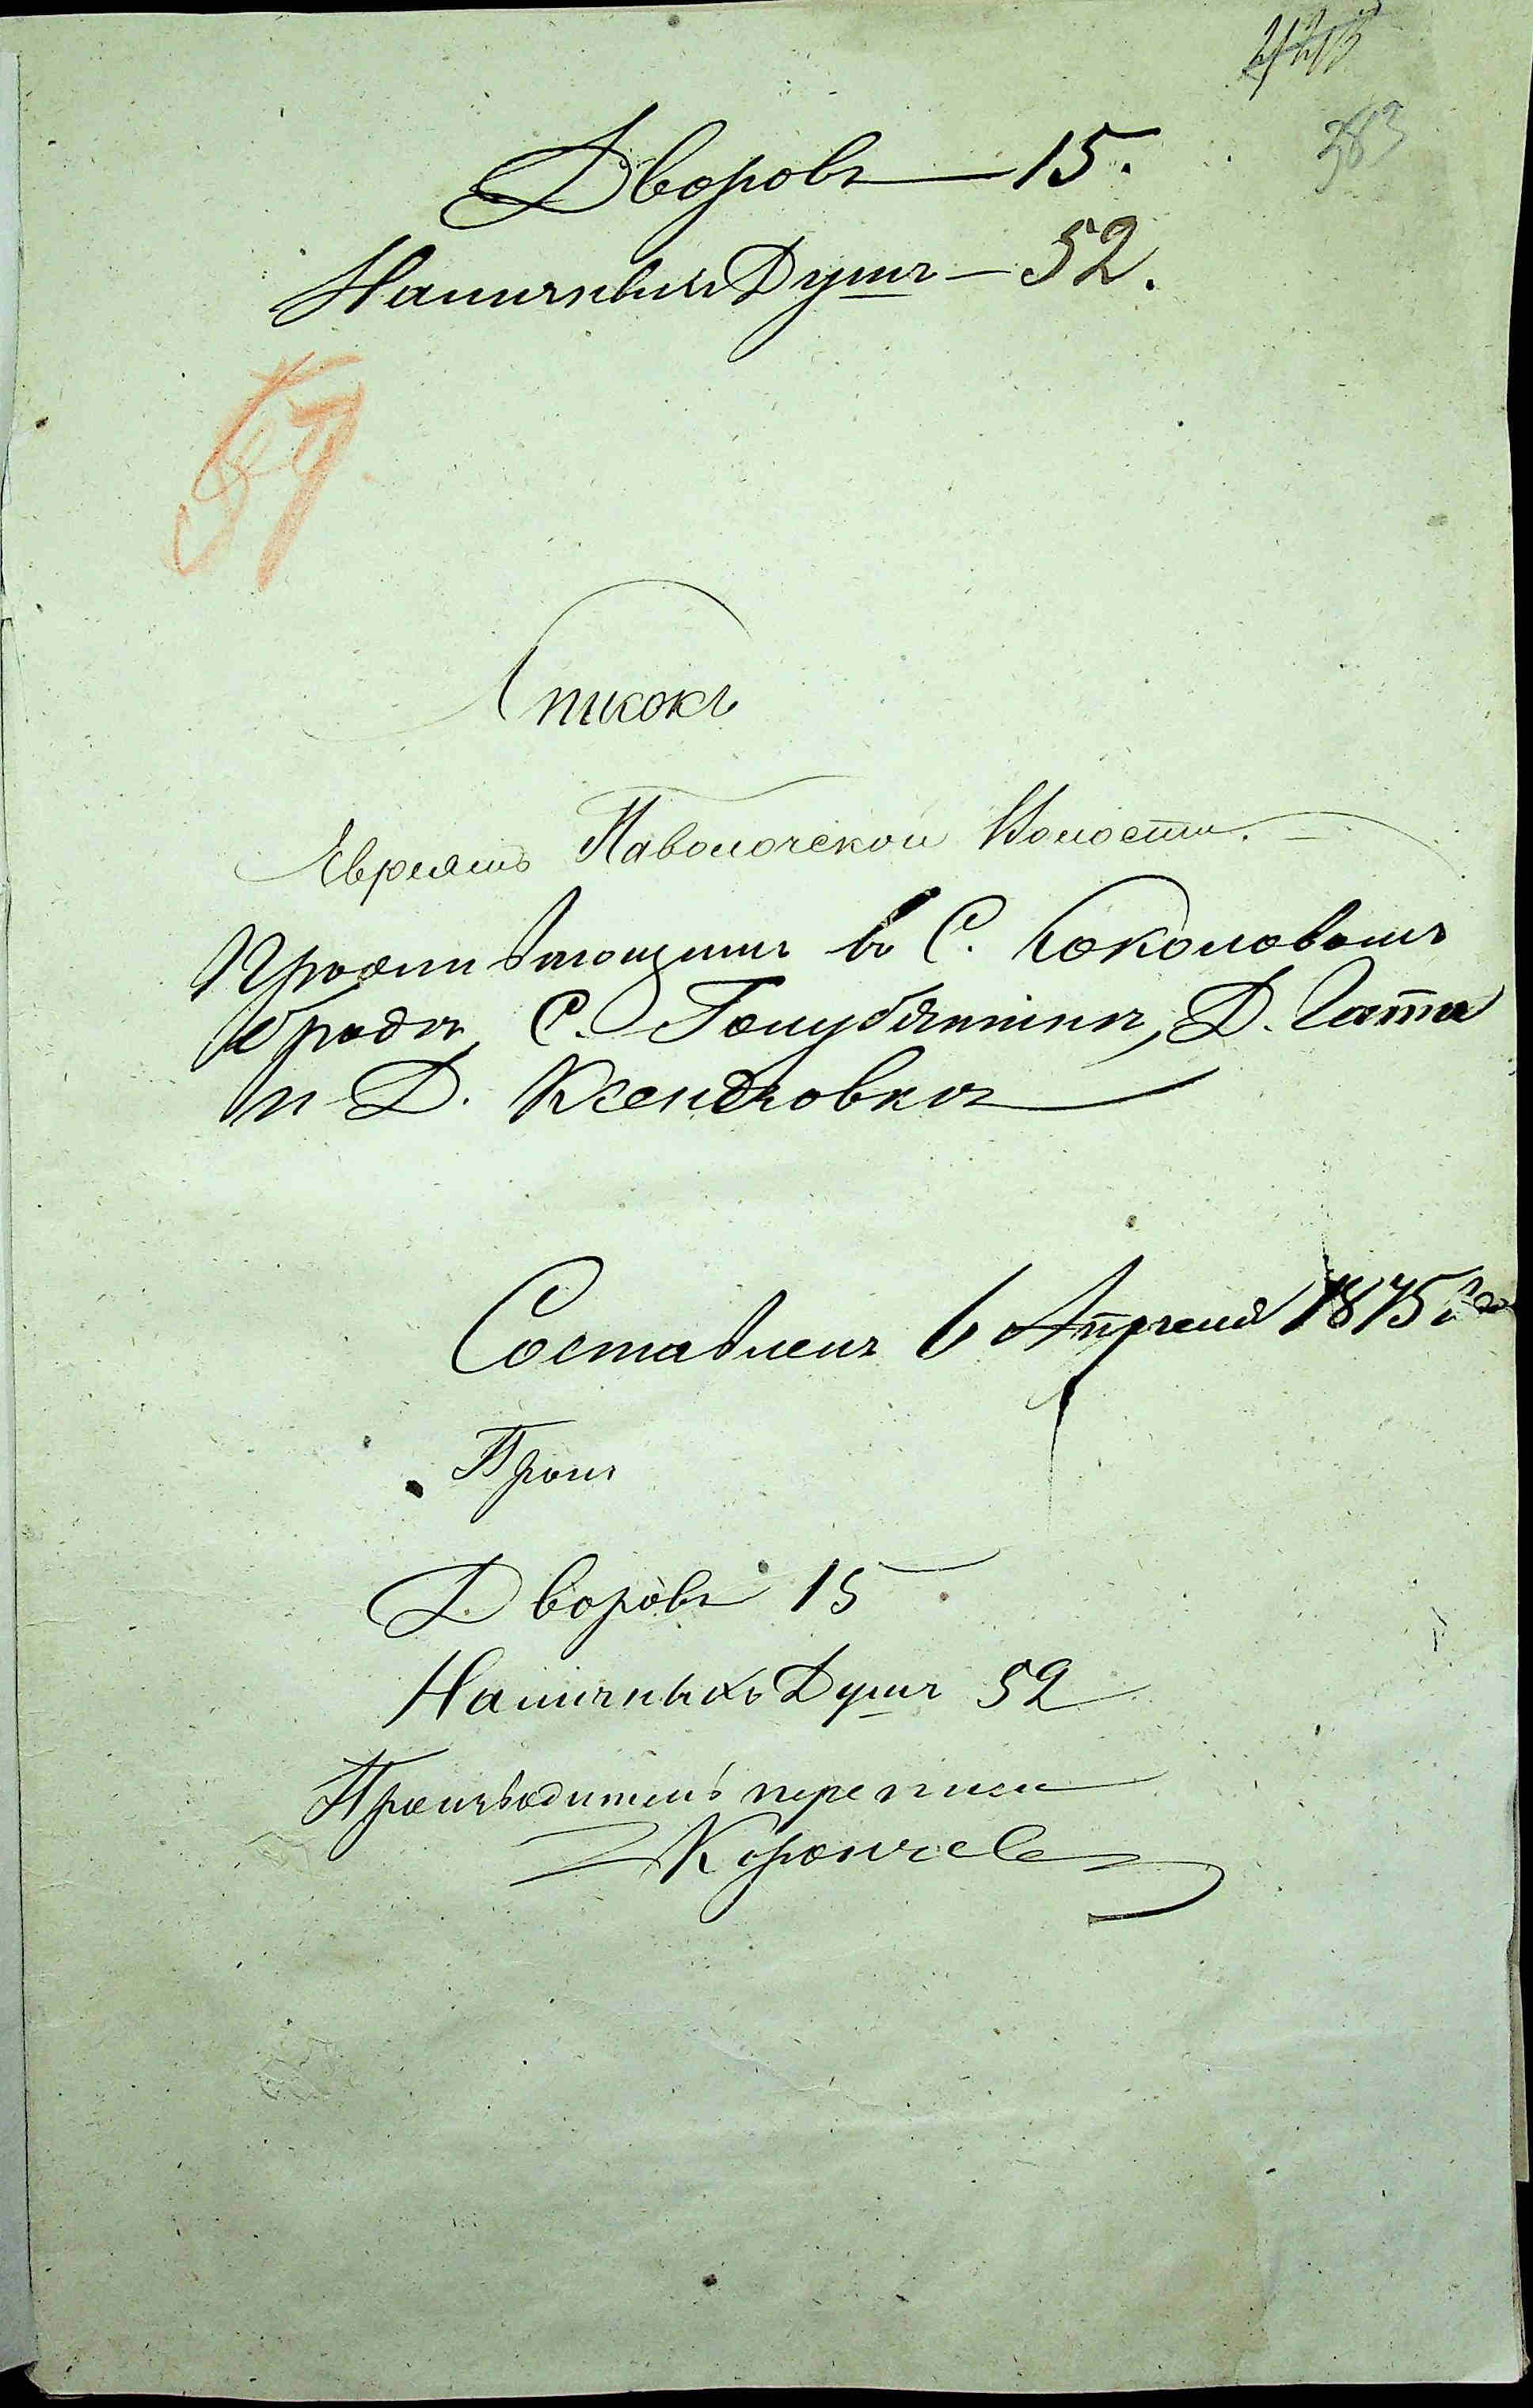 383
Дворовъ — 15.
Наличныхъ Душъ — 52.
57.
Списокъ
Евреямъ Паволочской Волости.
Проживающимъ въ С. Соколовомъ
Бродѣ, С. Голубятинѣ, Д. Гатка
и Д. Ксендзовкѣ
Составленъ 6 Апрѣля 1875 го
Дворовъ 15
Наличныхъ Душъ 52
Производитель переписи